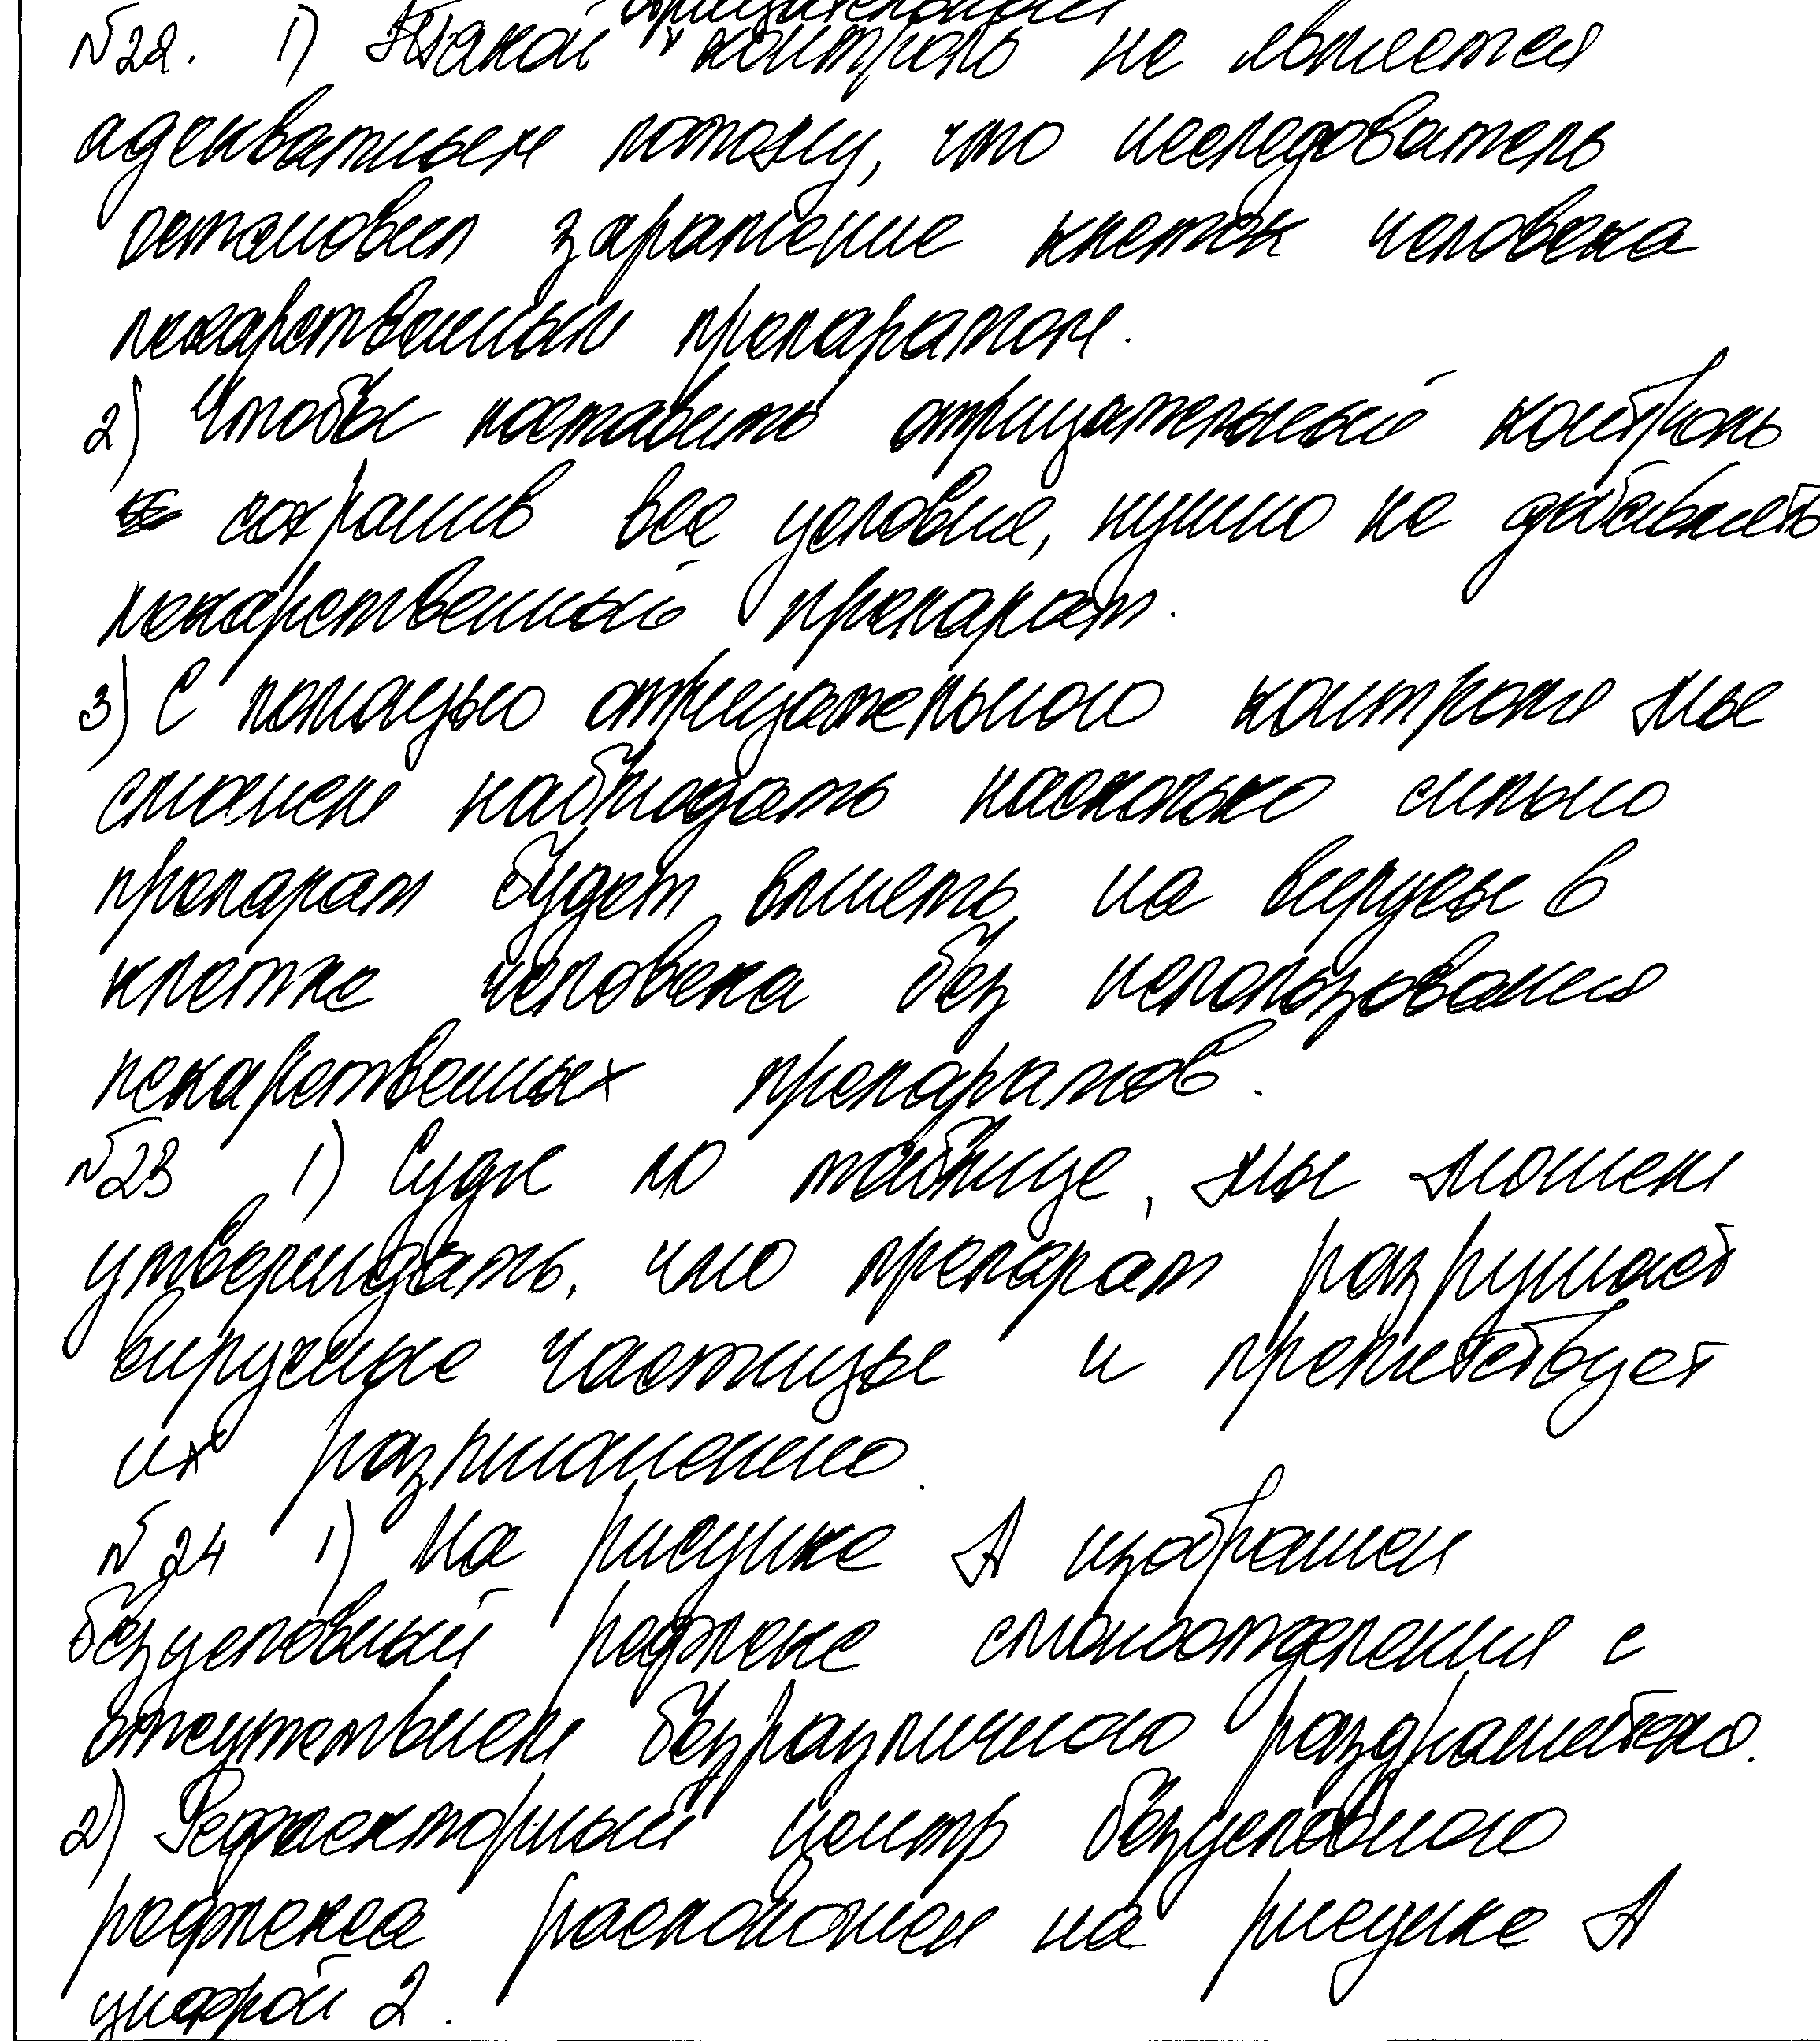 отрицательный
№22. 1) Такой контроль не является
адекватным потому, что исследователь
остановил заражение клеток человека
лекарственным препаратом.
2) Чтобы поставить отрицательный контроль
сохранив все условия, нужно не добавлять
лекарственный препарат.
3) С помощью отрицательного контроля мы
сможем наблюдать насколько сильно
препарат будет влиять на вирусы в
клетке человека без использования
лекарственных препаратов.
№23 1) Судя по таблице, мы можем
утверждать, что препарат разрушает
вирусные частицы и препятствует
их размножению.
№24 1) На рисунке А изображен
безусловный рефлекс слюноотделения с
отсутствием безразличного раздражителя.
2) Рефлекторный центр безусловного
рефлекса расположен на рисунке А
цифрой 2.